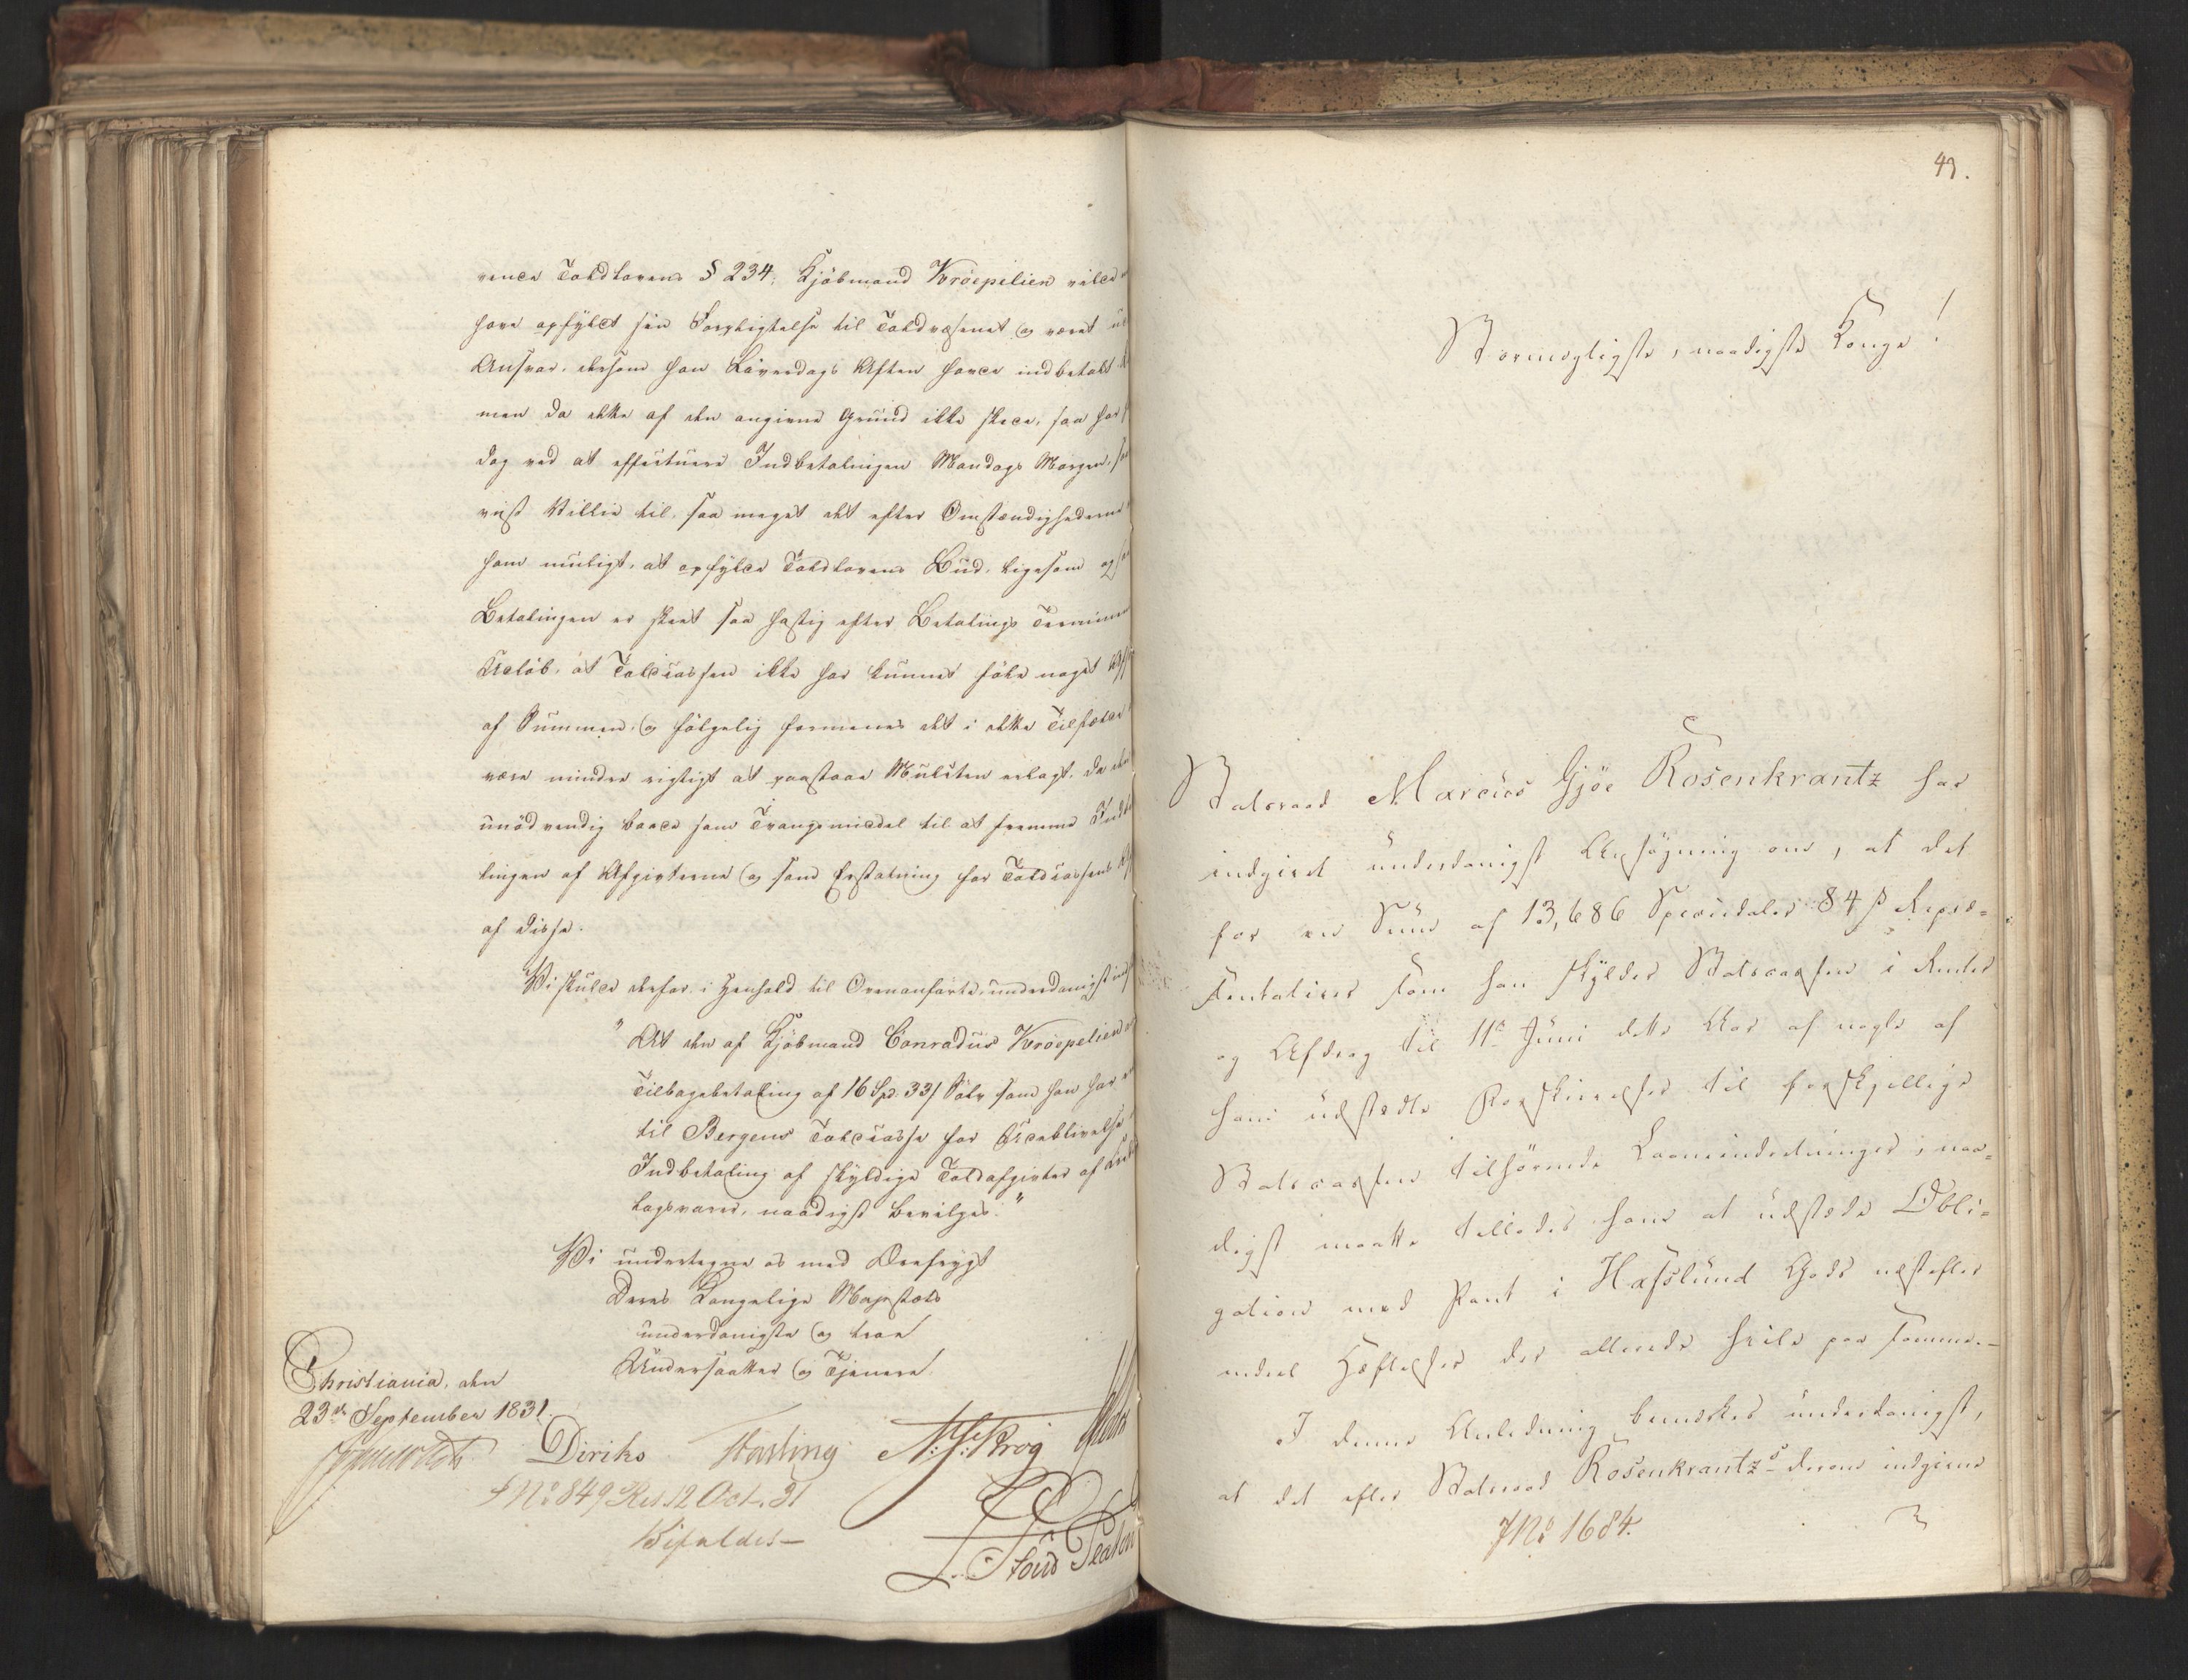 vende Toldlovens § 234, Kjöbmand Kröepelien vilde
have opfyldt sin Forpligtelse til Toldvæsenet og været
Ansvar, dersom han Löverdags Aften havde indbetalt
men da dette af den angivne Grund ikke skede, saa har
dog ved at effectuere Indbetalingen Mandags Morgen,
viist Villie til, saa meget det efter Omstændighederne
ham muligt, at opfylde Toldlovens Bud, ligesom og
Betalingen er skeet saa hastig efter Betalings Terminen
Udløb, at Toldcassen ikke har kunnet föle noget
af Summen, og fölgelig formenes det i dette Tilfælde
være mindre rigtigt at paastaae Mulcten erlagt, da
unödvendig baade som Tvangsmiddel til at fremme
lingen af Afgivterne og som Erstatning for Toldcassens
af disse.
Vi skulde derfor i Henhold til Ovenanførte underdanigst
"At den af Kjöbmand Conradus Kröepelien
Tilbagebetaling af 16 Spd. 33 s Sölv som han har
til Bergens Toldcasse for Udeblivelse
Indbetaling af skyldige Toldafgivter af
lagsvarer, naadigst bevilges."
Vi undertegne os med Ærefrygt
Deres Kongelige Majestæts
underdanigste og troe
Undersaatter og Tjenere.
Christiania, den
23de September 1831.
Diriks Fasting N: J: Krog
JNo 849 Res. 12 Oct. 31
Bifaldes –
L. Stoud Platou
49.
Stormægtigste, naadigste Konge!
Statsraad Marcus Gjöe Rosenkrantz har
indgivet underdanigst Ansøgning om, at det
for en Sum af 13,686 Speciedaler 84 s Repræ=
sentativer som han skylder Statscassen i Renter
og Afdrag til 11te Juni dette Aar af nogle af
ham udstedte Forskrivelser til forskjellige
Statscassen tilhørende Laaneindretninger, naa=
digst maatte tillades ham at udstede Obli=
gation med Pant i Hafslund Gods næstefter
endeel Hæftelser der allerede hvile paa samme. –
I denne Anledning bemærkes underdanigst,
at det efter Statsraad Rosenkrantz's derom indgivne
JNo 1684.